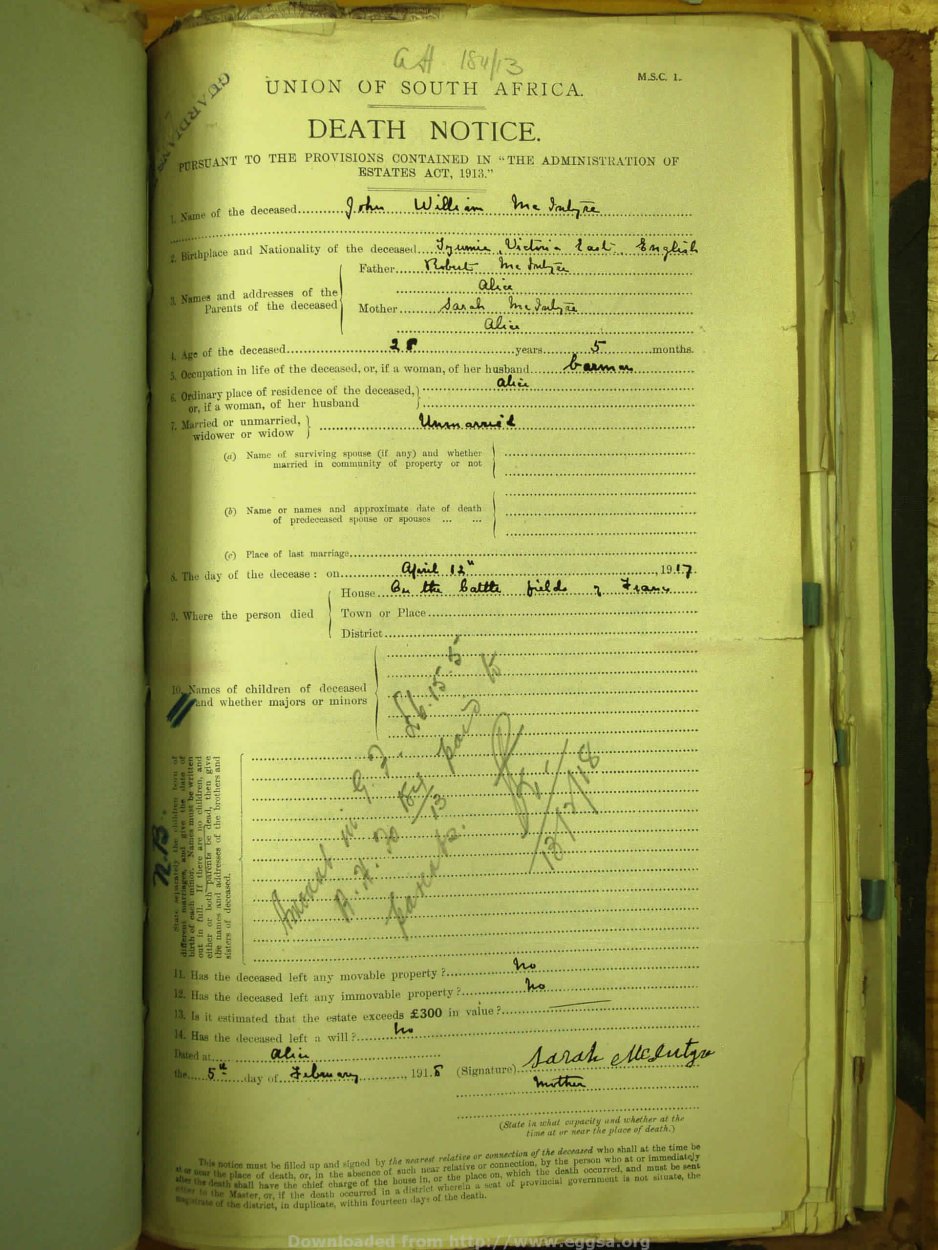 GH 184/13
M.S.C. 1.
GUARDIAN
UNION OF SOUTH AFRICA.
DEATH NOTICE.
PURSUANT TO THE PROVISIONS CONTAINED IN "THE ADMINISTRATION OF
ESTATES ACT, 1913."
1. Name of the deceased John William McIntyre
2. Birthplace and Nationality of the deceased Tyumie, Victoria East English
3. Names and addresses of the Parents of the deceased
Father Robert McIntyre
Alice
Mother Sarah McIntyre
Alice
4. Age of the deceased 28 years 5 months.
5. Occupation in life of the deceased, or, if a woman, of her husband barman
6. Ordinary place of residence of the deceased, Alice
or, if a woman, of her husband
7. Married or unmarried, Unmarried
widower or widow
(a) Name of surviving spouse (if any) and whether
married in community of property or not
(b) Name or names and approximate date of death
of predeceased spouse or spouses ... ...
(c) Place of last marriage
8. The day of the decease: on April 12th, 1917.
9. Where the person died
House On the battle fields of France
Town or Place
District
10. Names of children of deceased
and whether majors or minors
N.B.
State separately the children born of
different marriages, and give the date of
birth of each minor. Names must be written
out in full. If there are no children, and
either or both parents be dead, then give
the names and addresses of the brothers and
sisters of deceased.
Amount in G.F. £6.15.5
B.F. 20 184/13 paid to
parents.
13/12/18
11. Has the deceased left any movable property? No
12. Has the deceased left any immovable property? No
13. Is it estimated that the estate exceeds £300 in value?
14. Has the deceased left a will? No
Dated at Alice
the 5th day of February, 1918
(Signature) Sarah McIntyre
Mother
(State in what capacity and whether at the
time at or near the place of death.)
This notice must be filled up and signed by the nearest relative or connection of the deceased who shall at the time be
at or near the place of death, or, in the absence of such near relative or connection, by the person who at or immediately
after the death shall have the chief charge of the house in, or the place on, which the death occurred, and must be sent
either to the Master, or, if the death occurred in a district wherein a seat of provincial government is not situate, the
Magistrate of the district, in duplicate, within fourteen days of the death.
Downloaded from http://www.eggsa.org